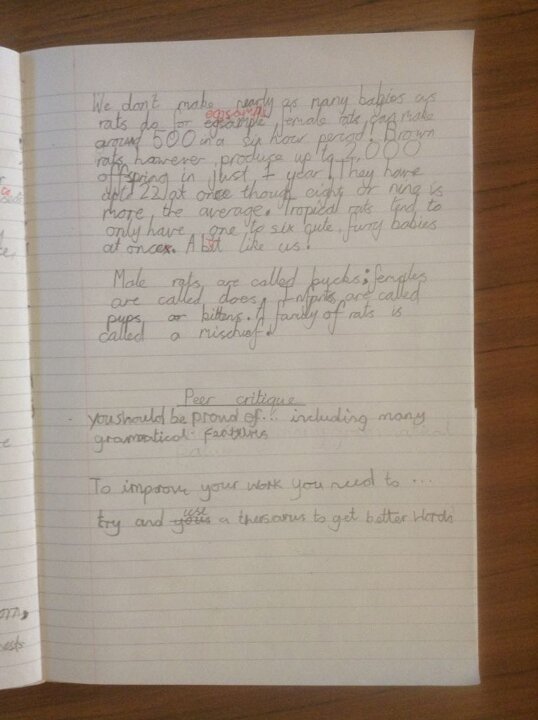 We don't make nearly as many babies as
example
rats do for female rats can make
around 500 in a six hour period! Brown
rats, however, produce up to 2,000
offspring in just 1 year! They have
upto 22 at once though eight or nine is
more the average. Tropical rats tend to
only have one to six cute furry babies
at once. A bit like us!
Male rats are called bucks; females
are called does. Infants are called
pups or kittens. A family of rats is
called a mischief.
Peer critique
you should be proud of... including many
grammatical features
To improve your work you need to ...
use
try and a thesarus to get better words
ca